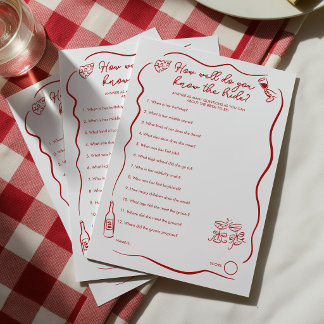 How well do you
know the bride?
ANSWER AS MANY QUESTIONS AS YOU CAN
ABOUT THE BRIDE TO BE!
1. What is her birthday?
2. What is her middle name?
3. What kind of car does she drive?
4. What size shoe does she wear?
5. What was her first job?
6. What high school did she go to?
7. What is her celebrity crush?
8. Who was her first boyfriend?
9. How many children does she want?
10. What age did she meet the groom?
11. Where did she meet the groom?
12. Where did the groom propose?
NAME:
SCORE: